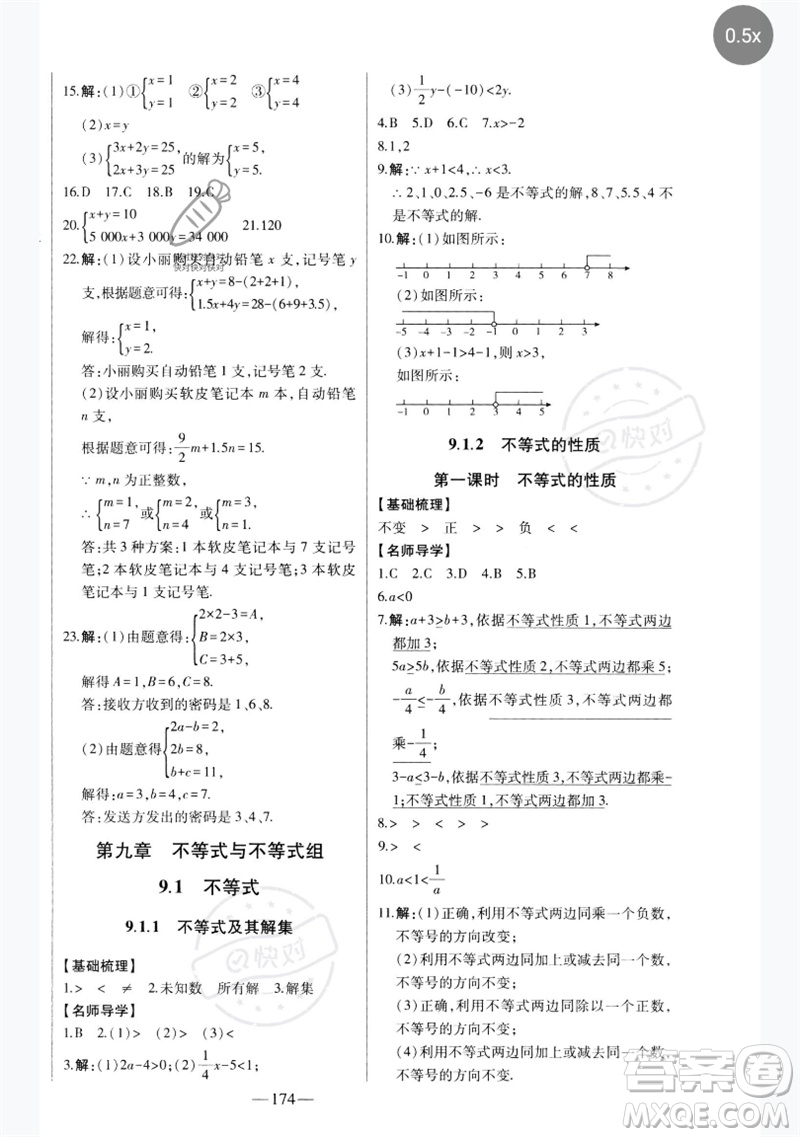 0.5x
15.解:(1)①{x=1 y=1 ②{x=2 y=2 ③{x=4 y=4
(2)x=y
(3){3x+2y=25, 2x+3y=25, 的解为{x=5, y=5.
16.D 17.C 18.B 19.C
20.{x+y=10 5 000x+3 000y=34 000 21.120
22.解:(1)设小丽购买自动铅笔 x 支,记号笔 y
支,根据题意可得:{x+y=8-(2+2+1), 1.5x+4y=28-(6+9+3.5),
解得:{x=1, y=2.
答:小丽购买自动铅笔 1 支,记号笔 2 支.
(2)设小丽购买软皮笔记本 m 本,自动铅笔
n 支,
根据题意可得:9/2 m+1.5n=15.
∵ m,n 为正整数,
∴{m=1, n=7 或{m=2, n=4 或{m=3, n=1.
答:共 3 种方案:1 本软皮笔记本与 7 支记号
笔;2 本软皮笔记本与 4 支记号笔;3 本软皮
笔记本与 1 支记号笔.
23.解:(1)由题意得:{2×2-3=A, B=2×3, C=3+5,
解得 A=1,B=6,C=8.
答:接收方收到的密码是 1、6、8.
(2)由题意得{2a-b=2, 2b=8, b+c=11,
解得:a=3,b=4,c=7.
答:发送方发出的密码是 3、4、7.
第九章 不等式与不等式组
9.1 不等式
9.1.1 不等式及其解集
【基础梳理】
1.> < ≠ 2.未知数 所有解 3.解集
【名师导学】
1.B 2.(1)> (2)> (3)<
3.解:(1)2a-4>0;(2)1/4 x-5<1;
(3)1/2 y-(-10)<2y.
4.B 5.D 6.C 7.x>-2
8.1,2
9.解:∵ x+1<4,∴ x<3.
∴ 2、1、0、2.5、-6 是不等式的解,8、7、5.5、4
不是不等式的解.
10.解:(1)如图所示:
-1 0 1 2 3 4 5 6 7 8
(2)如图所示:
-5 -4 -3 -2 -1 0 1 2 3
(3)x+1-1>4-1,则 x>3,
如图所示:
-1 0 1 2 3 4 5
9.1.2 不等式的性质
第一课时 不等式的性质
【基础梳理】
不变 > 正 > > 负 < <
【名师导学】
1.C 2.C 3.D 4.B 5.B
6.a<0
7.解:a+3>b+3,依据不等式性质 1,不等式两边
都加 3;
5a>5b,依据不等式性质 2,不等式两边都乘 5;
-a/4<-b/4,依据不等式性质 3,不等式两边都
乘-1/4;
3-a<3-b,依据不等式性质 3,不等式两边都乘-
1;不等式性质 1,不等式两边都加 3.
8.> > < > >
9.> <
10.a<1<1/a
11.解:(1)正确,利用不等式两边同乘一个负数,
不等号的方向改变;
(2)利用不等式两边同加上或减去同一个数,
不等号的方向不变;
(3)正确,利用不等式两边同除以一个正数,
不等号的方向不变;
(4)利用不等式两边同加上或减去同一个数,
不等号的方向不变.
— 174 —
快对
快对
答案圈
MXQE.COM